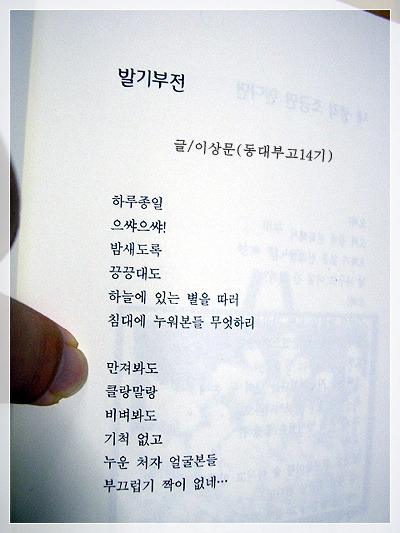 발기부전
글/이상문(동대부고14기)
하루종일
으쌰으쌰!
밤새도록
끙끙대도
하늘에 있는 별을 따러
침대에 누워본들 무엇하리
만져봐도
클랑말랑
비벼봐도
기척 없고
누운 처자 얼굴본들
부끄럽기 짝이 없네…